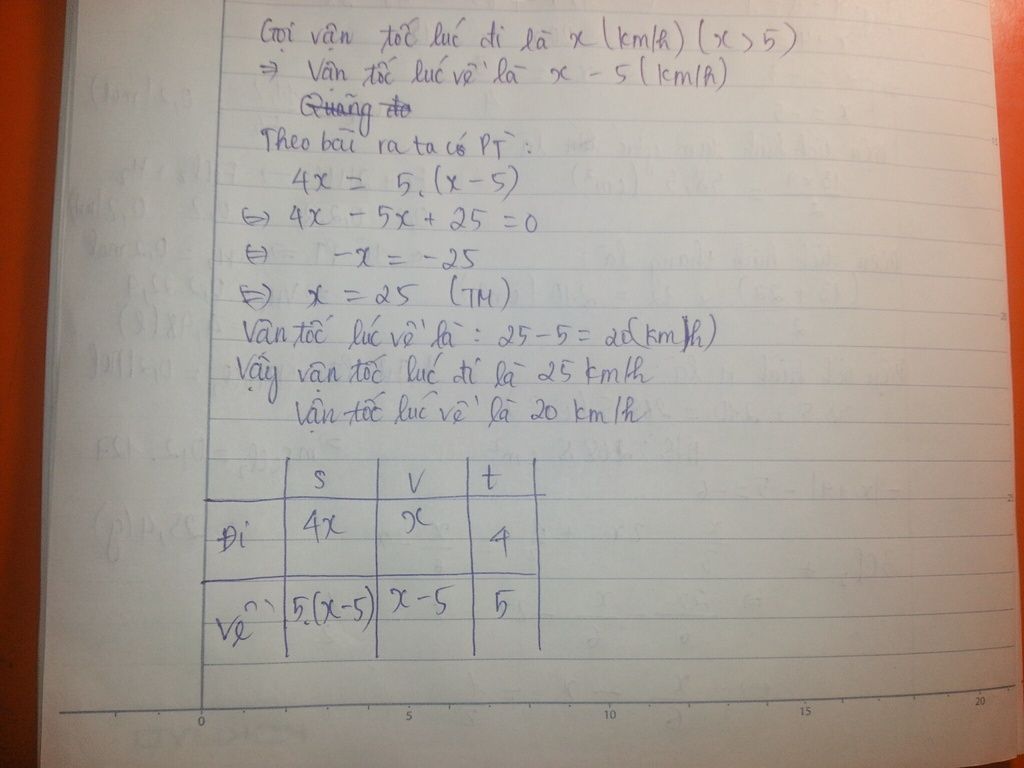 Gọi vận tốc lúc đi là x (km/h) (x > 5)
⇒ Vận tốc lúc về là x - 5 (km/h)
Quãng đo
Theo bài ra ta có PT :
4x = 5.(x-5)
⇔ 4x - 5x + 25 = 0
⇔ -x = -25
⇔ x = 25 (TM)
Vận tốc lúc về là : 25 - 5 = 20 (km/h)
Vậy vận tốc lúc đi là 25 km/h
Vận tốc lúc về là 20 km/h
S V t
Đi 4x x 4
Về 5.(x-5) x-5 5
0 5 10 15 20